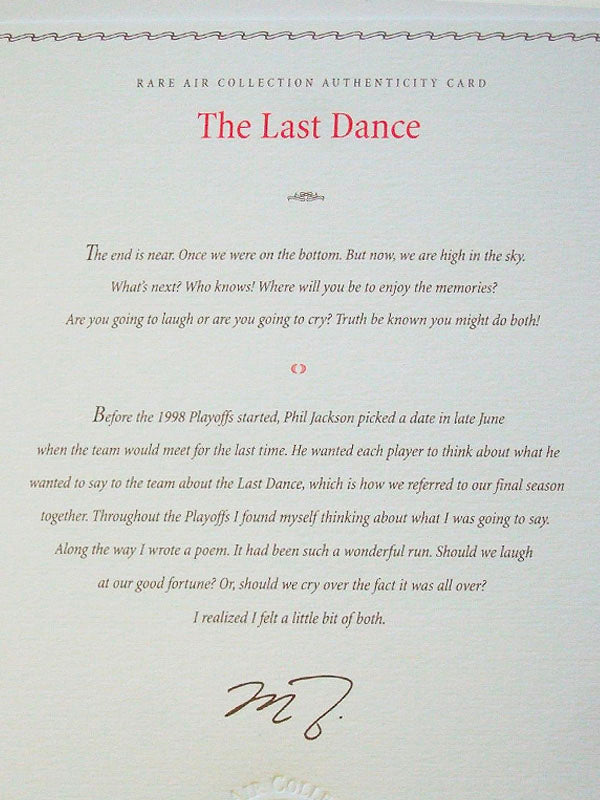 RARE AIR COLLECTION AUTHENTICITY CARD
The Last Dance
The end is near. Once we were on the bottom. But now, we are high in the sky.
What's next? Who knows! Where will you be to enjoy the memories?
Are you going to laugh or are you going to cry? Truth be known you might do both!
Before the 1998 Playoffs started, Phil Jackson picked a date in late June
when the team would meet for the last time. He wanted each player to think about what he
wanted to say to the team about the Last Dance, which is how we referred to our final season
together. Throughout the Playoffs I found myself thinking about what I was going to say.
Along the way I wrote a poem. It had been such a wonderful run. Should we laugh
at our good fortune? Or, should we cry over the fact it was all over?
I realized I felt a little bit of both.
M J.